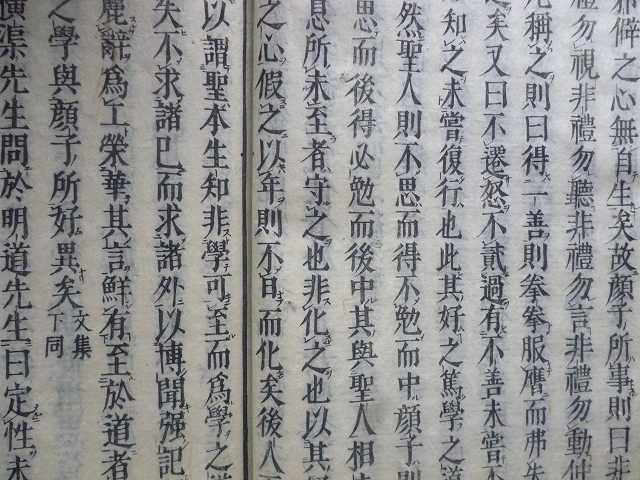 邪僻之心無自生矣故顔子所事則曰非
禮勿視非禮勿聽非禮勿言非禮勿動仲
尼稱之則曰得一善則拳拳服膺而弗失
之矣又曰不遷怒不貳過有不善未嘗不
知知之未嘗復行也此其好之篤學之道
然聖人則不思而得不勉而中顔子則
思而後得必勉而後中其與聖人相
息所未至者守之也非化之也以其
之心假之以年則不日而化矣後人
以謂聖本生知非學可至而爲學之道
失不求諸己而求諸外以博聞强記
麗辭爲工榮華其言鮮有至於道者
之學與顔子所好異矣 文集下同
横渠先生問於明道先生曰定性未